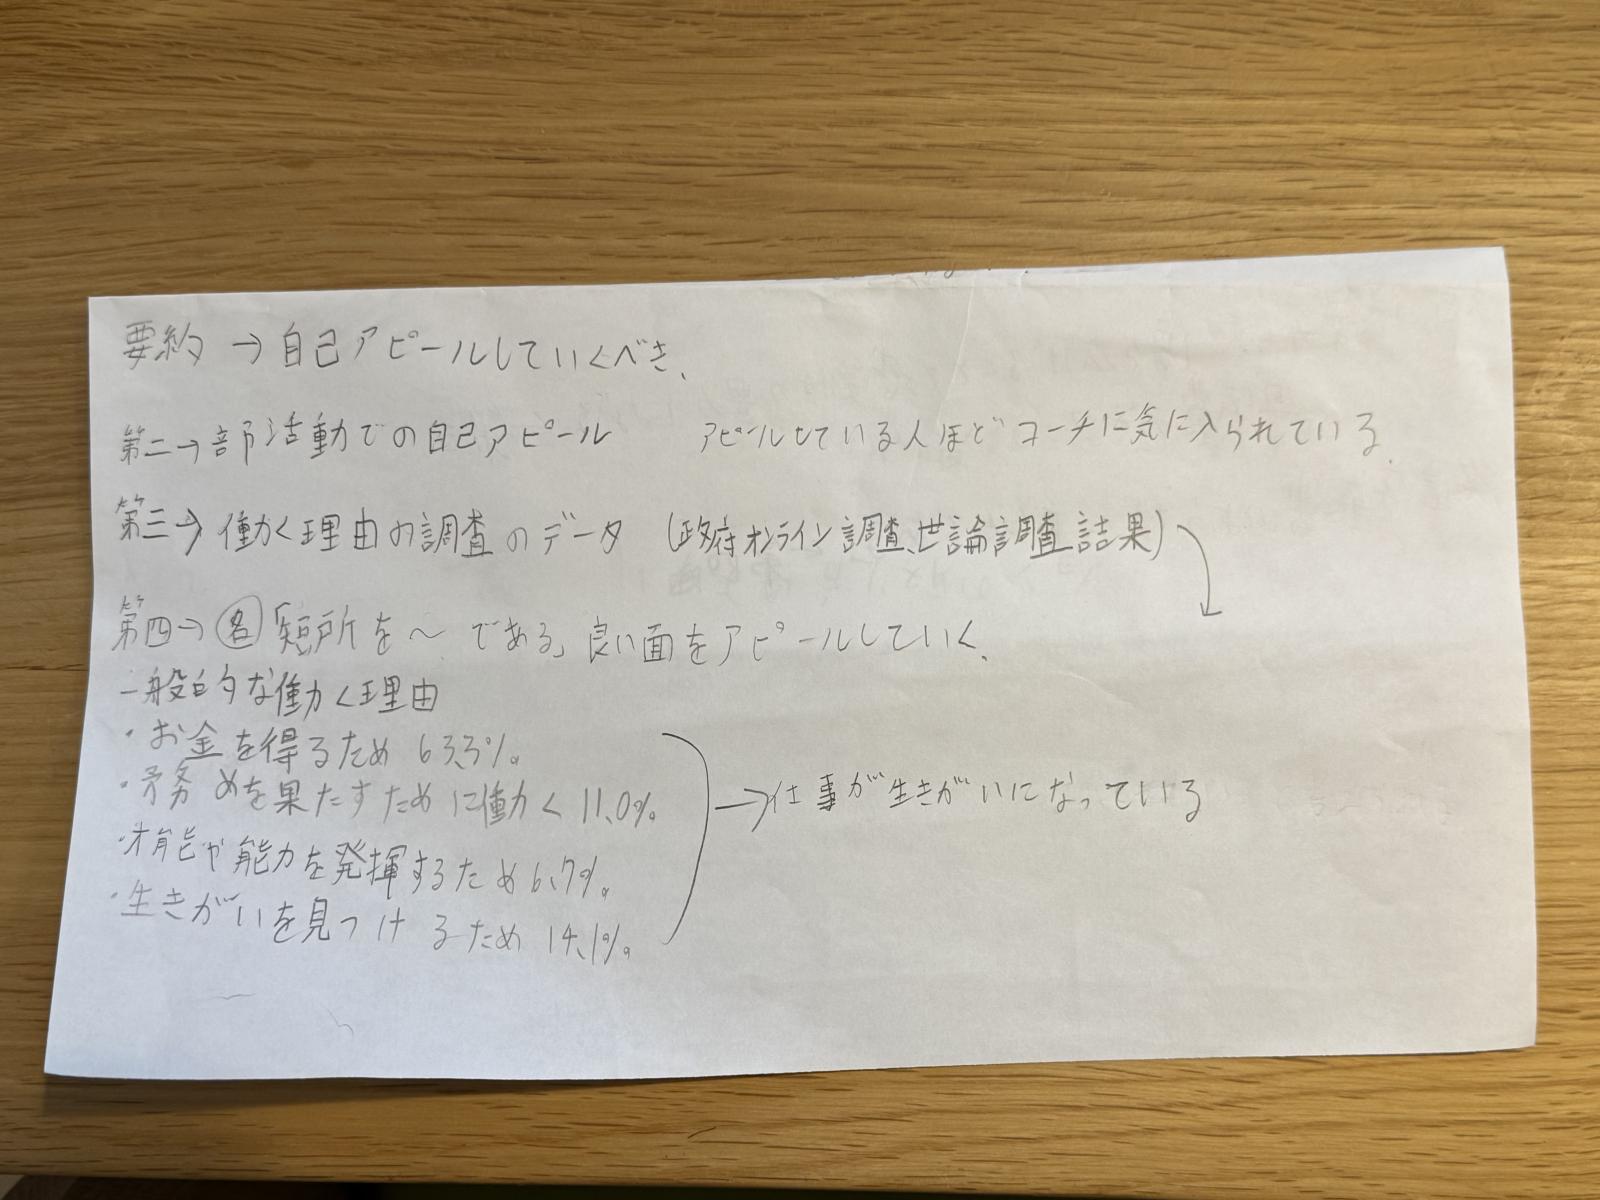 要約 → 自己アピールしていくべき、
第二→部活動での自己アピール アピールしている人ほどコーチに気に入られている。
第三→働く理由の調査のデータ (政府オンライン調査、世論調査結果)
第四→名「短所を〜である」良い面をアピールしていく、
一般的な働く理由
・お金を得るため 63.3%。
・務めを果たすために働く 11.0%。
・才能や能力を発揮するため 6.7%。
・生きがいを見つけるため 14.1%。
→仕事が生きがいになっている